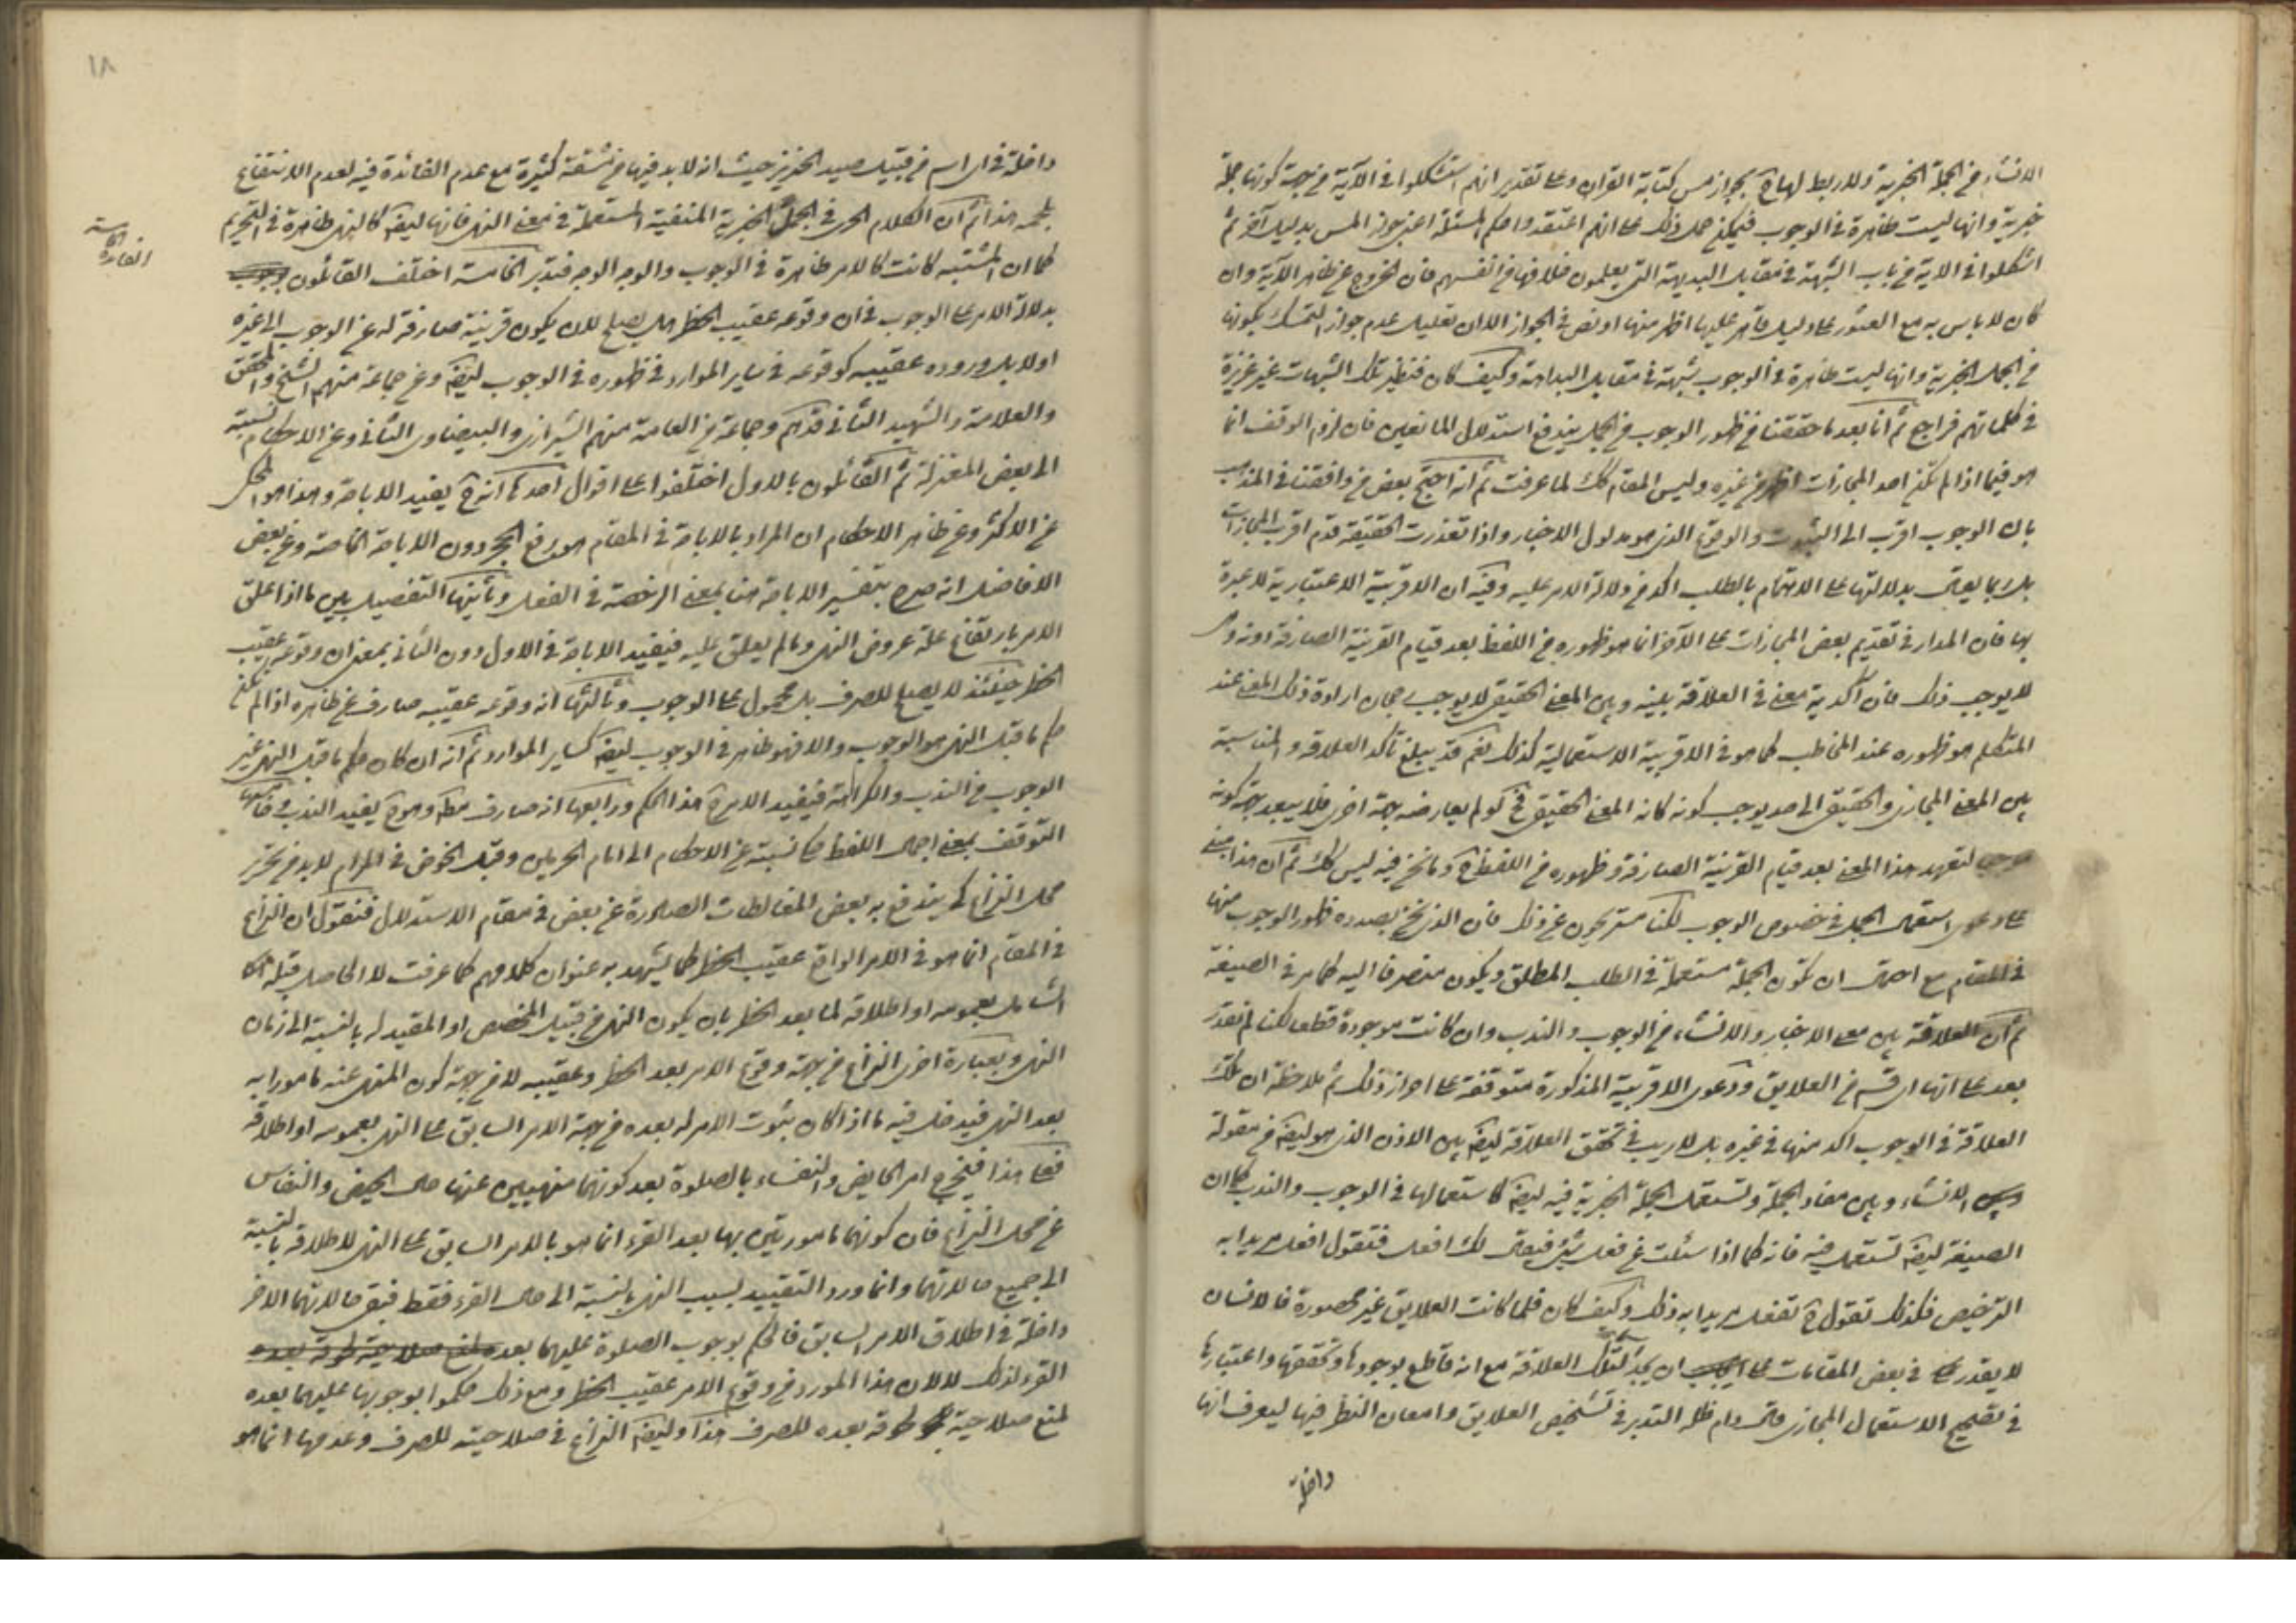 الانشاء في الجملة الخبرية ولا ربط لها ح بجواز مس كتابة القران وعلى تقدير انهم استشكلوا في الآية من جهة كونها جملة
خبرية وانها ليست ظاهرة في الوجوب فيمكن حمل ذلك على انهم اعتقدوا حكم المسئلة اعني جواز المس بدليل آخر ثم
اشكلوا في الاية من باب الشبهة في مقابل البديهة التي يعلمون خلافها في انفسهم فان الخروج عن ظاهر الآية وان
كان لا باس به مع العثور على دليل قاهر عليها اظهر منها او نص في الجواز الا ان تعليل عدم جواز التمسك بكونها
من الجمل الخبرية وانها ليست ظاهرة في الوجوب شبهة في مقابل البداهة وكيف كان فنظير تلك الشبهات غير عزيزة
في كلماتهم فراجع ثم انا بعد ما حققنا من ظهور الوجوب من الجمل يندفع استدلال المانعين فان لزوم الوقف انما
هو فيما اذا لم يكن احد المجازات اظهر من غيره وليس المقام كك لما عرفت ثم انه احتج بعض من وافقنا في المذهب
بان الوجوب اقرب الى الثبوت والوقوع الذي هو مدلول الاخبار واذا تعذرت الحقيقة قدم اقرب المجازات
بل ربما يقال بدلالتها على الاهتمام بالطلب اكد من دلالة الامر عليه وفيه ان الاقربية الاعتبارية لا عبرة
بها فان المدار في تقديم بعض المجازات على الآخر انما هو ظهوره من اللفظ بعد قيام القرينة الصارفة دونه
لا يوجب ذلك فان آكدية معنى في العلاقة بينه وبين المعنى الحقيقي لا يوجب رجحان ارادة ذلك المعنى عند
المتكلم هو ظهوره عند المخاطب كما هو في الاقربية الاستعمالية كذلك نعم قد يبلغ تأكد العلاقة والمناسبة
بين المعنى المجازي والحقيقي الى حد يوجب كونه كانه المعنى الحقيقي فح لو لم يعارضه جهة اخرى فلا يبعد جهة كونه
لتعهد هذا المعنى بعد قيام القرينة الصارفة وظهوره من اللفظ ح وما نحن فيه ليس كك ثم ان هذا مبني
على دعوى استعمال الجمل في خصوص الوجوب لكنا مستريحون عن ذلك فان الذي نحن بصدده ظهور الوجوب منها
في المقام مع احتمال ان تكون الجملة مستعملة في الطلب المطلق ويكون منصرفا اليه كما مر في الصيغة
ثم ان العلاقة بين معنى الاخبار والانشاء من الوجوب والندب وان كانت موجودة قطعا لكنا لم نقدر
بعد على انها اي قسم من العلايق ودعوى الاقربية المذكورة متوقفة على احراز ذلك ثم ملاحظة ان تلك
العلاقة في الوجوب اكد منها في غيره بل لا ريب في تحقق العلاقة ايضا بين الاذن الذي هو ايضا من مقولة
الانشاء وبين مفاد الجملة وتستعمل الجملة الخبرية فيه ايضا كاستعمالها في الوجوب والندب كما ان
الصيغة ايضا تستعمل فيه فانه كما اذا سئلت عن فعل شيئ فيقال لك افعل فتقول افعل مريدا به
الترخيص فكذلك تقول ح تفعل مريدا به ذلك وكيف كان فلما كانت العلايق غير محصورة فالانسان
لا يقدر في بعض المقامات على ان يجد تلك العلاقة مع انه قاطع بوجودها وتحققها واعتبارها
في تصحيح الاستعمال المجازي قال دام ظله التدبر في تشخيص العلايق وامعان النظر فيها ليعرف انها
داخلة
١٨
داخلة في اي اسم من قبيل صيد الخنزير حيث انه لا بد فيها من مشقة كثيرة مع عدم الفائدة فيه لعدم الانتفاع
بلحمه هذا ثم ان الكلام الجاري في الجمل الخبرية المنفية المستعملة في معنى النهي فانها ايضا كالنهي ظاهرة في التحريم
كما ان المثبتة كانت كالامر ظاهرة في الوجوب والوجه الوجه فتدبر الخامسة اختلف القائلون
الفائدة الخامسة
بدلالة الامر على الوجوب في ان وقوعه عقيب الحظر هل يصلح لان يكون قرينة صارفة له عن الوجوب الى غيره
او لا بل وروده عقيبه كوقوعه في ساير الموارد في ظهوره في الوجوب ايضا وعن جماعة منهم الشيخ والمحقق
والعلامة والشهيد الثاني قدهم وجماعة من العامة منهم الشيرازي والبيضاوي الثاني وعن الاحكام نسبته
الى بعض المعتزلة ثم القائلون بالاول اختلفوا على اقوال احدها انه ح يفيد الاباحة وهذا هو المحكي
عن الاكثر وعن ظاهر الاحكام ان المراد بالاباحة في المقام هو رفع الحجر دون الاباحة الخاصة وعن بعض
الافاضل انه صرح بتفسير الاباحة هنا بمعنى الرخصة في الفعل وثانيها التفصيل بين ما اذا علق
الامر بارتفاع علة عروض النهي وما لم يعلق عليه فيفيد الاباحة في الاول دون الثاني بمعنى ان وقوعه عقيب
الحظر حينئذ لا يصلح للصرف بل محمول على الوجوب وثالثها انه وقوعه عقيبه صارف عن ظاهره اذا لم يكن
حكم ما قبل النهي هو الوجوب والا فهو ظاهر في الوجوب ايضا كساير الموارد ثم انه ان كان حكم ما قبل النهي غير
الوجوب من الندب والكراهة فيفيد الامر ح هذا الحكم ورابعها انه صارف مطلقا وهو ح يفيد الندب وخامسها
التوقف بمعنى اجمال اللفظ كما نسبته عن الاحكام الى امام الحرمين وقبل الخوض في المرام لا بد من تحرير
محل النزاع كي يندفع به بعض المغالطات الصادرة عن بعض في مقام الاستدلال فنقول ان النزاع
في المقام انما هو في الامر الواقع عقيب الحظر كما يشهد به عنوان كلامهم كما عرفت لا الحاصل قبله
الشامل بعمومه او اطلاقه لما بعد الحظر بان يكون النهي من قبيل المخصص او المقيد له بالنسبة الى زمان
النهي وبعبارة اخرى النزاع من جهة وقوع الامر بعد الحظر وعقيبه لا من جهة كون المنهي عنه مامورا به
بعد النهي فيدخل فيه ما اذا كان ثبوت الامر له بعده من جهة الامر السابق على النهي بعمومه او اطلاقه
فعلى هذا فيخرج امر الحايض والنفساء بالصلوة بعد كونهما منهيين عنها حال الحيض والنفاس
عن محل النزاع فان كونهما مامورتين بها بعد القرء انما هو بالامر السابق على النهي لاطلاقه بالنسبة
الى جميع حالاتهما وانما ورد التقييد بسبب النهي بالنسبة الى حال القرء فقط فبقي حالاتهما الاخر
داخلة في اطلاق الامر السابق فالحكم بوجوب الصلوة عليهما بعد
القرء لذلك لا لان هذا المورد من وقوع الامر عقيب الحظر ومع ذلك حكموا بوجوبها عليهما بعده
لمنع صلاحية وقوعه بعده للصرف هذا وايضا النزاع في صلاحيته للصرف وعدمها انما هو